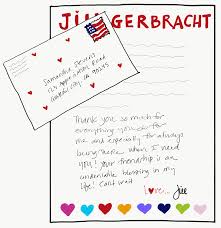 JILL GERBRACHT
Samantha Stevens
123 Apple Tree Road
CA 90245
Thank you so much for
everything you do for
me and especially for always
being there when I need
you! your friendship is an
undeniable blessing in my
life! Can't wait
love, Jill